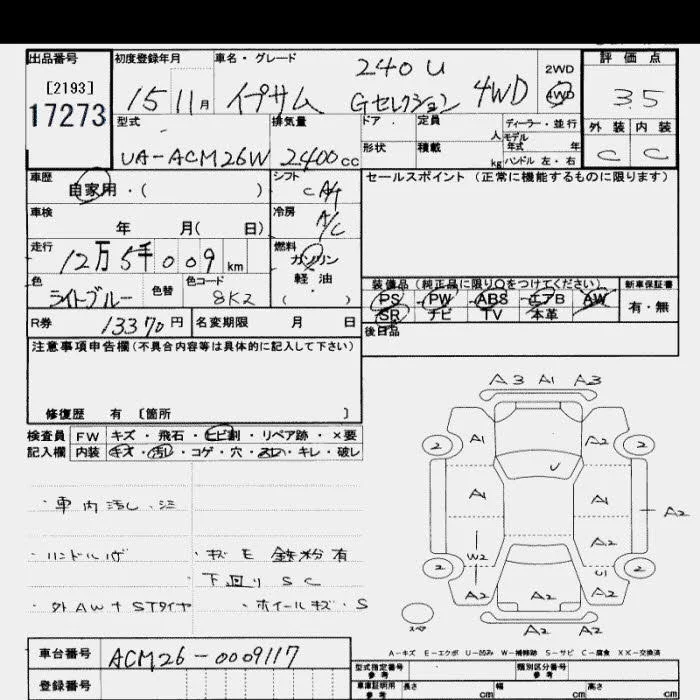 出品番号 初度登録年月 車名・グレード 評価点
[2193] 240 U 2WD
17273 15 11月 イプサム Gセレクション 4WD 4WD 3.5
型式 排気量 ドア・ 定員 ディーラー・並行 外装 内装
人 モデル
UA-ACM26W 2400cc 形状 積載 年式 年 C C
kg ハンドル 左・右
車歴 シフト セールスポイント (正常に機能するものに限ります)
自家用・( ) C A/T
車検 冷房
年 月( 日) A/C
走行 燃料
12万5千009 km ガソリン
色 色替 色コード 軽油 装備品(純正品に限り○をつけてください) 新車保証書
ライトブルー 8K2 ( ) PS PW ABS エアB AW 有・無
R券 13370円 名変期限 月 日 SR ナビ TV 本革
後日品
注意事項申告欄(不具合内容等は具体的に記入して下さい)
修復歴 有 〔箇所 〕
A3 A1 A3
検査員 FW キズ・飛石・ヒビ割・リペア跡・×要
記入欄 内装 キズ・汚レ・コゲ・穴・スレ・キレ・破レ
A1 A2
2 2
U
A1 A1
A2
A2
W2
2 2
A2 U1 A2
A2
A2 A2
スペア
・車内汚し・
・ハンドル
・キズ E 鉄粉有
下廻り S C
・外AW+STタイヤ ・ホイールキズ・S
A-キズ E-エクボ U-凹み W-補修跡 S-サビ C-腐食 XX-交換済
車台番号 ACM26-0009117
型式指定番号 参考 類別区分番号 参考
登録番号 車庫証明用 参考 長さ cm 幅 cm 高さ cm